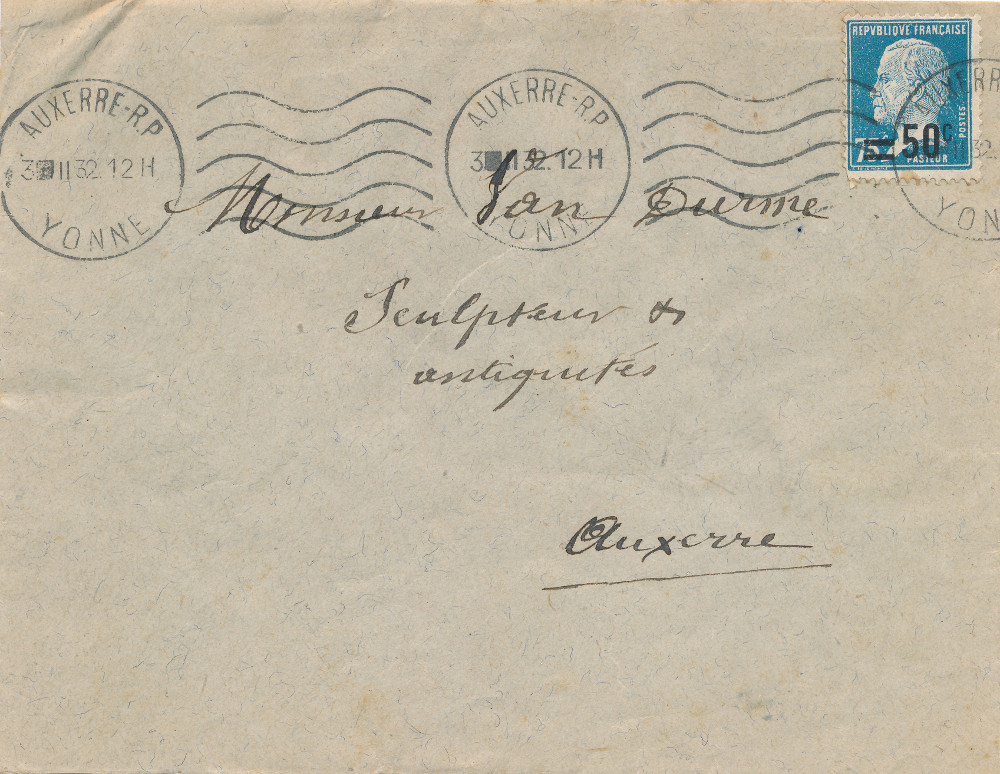 REPVBLIQUE FRANÇAISE
POSTES
75c 50c
PASTEUR
AUXERRE-R.P.
3 II 32. 12 H
YONNE
AUXERRE-R.P.
3 II 32. 12 H
YONNE
AUXERRE
YONN
Monsieur Van Durme
Sculpteur &
antiquités
Auxerre